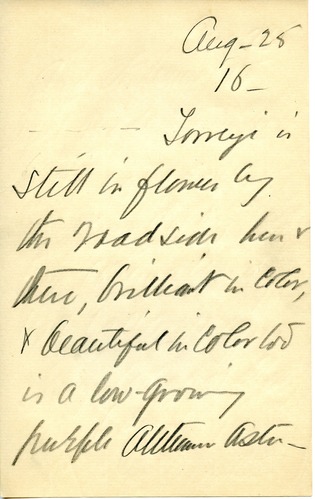 Aug - 25
16 -
Torreyi is
still in flower by
the roadside here &
there, brilliant in color,
& beautiful in color too
is a low-growing
purple Autumn Aster -